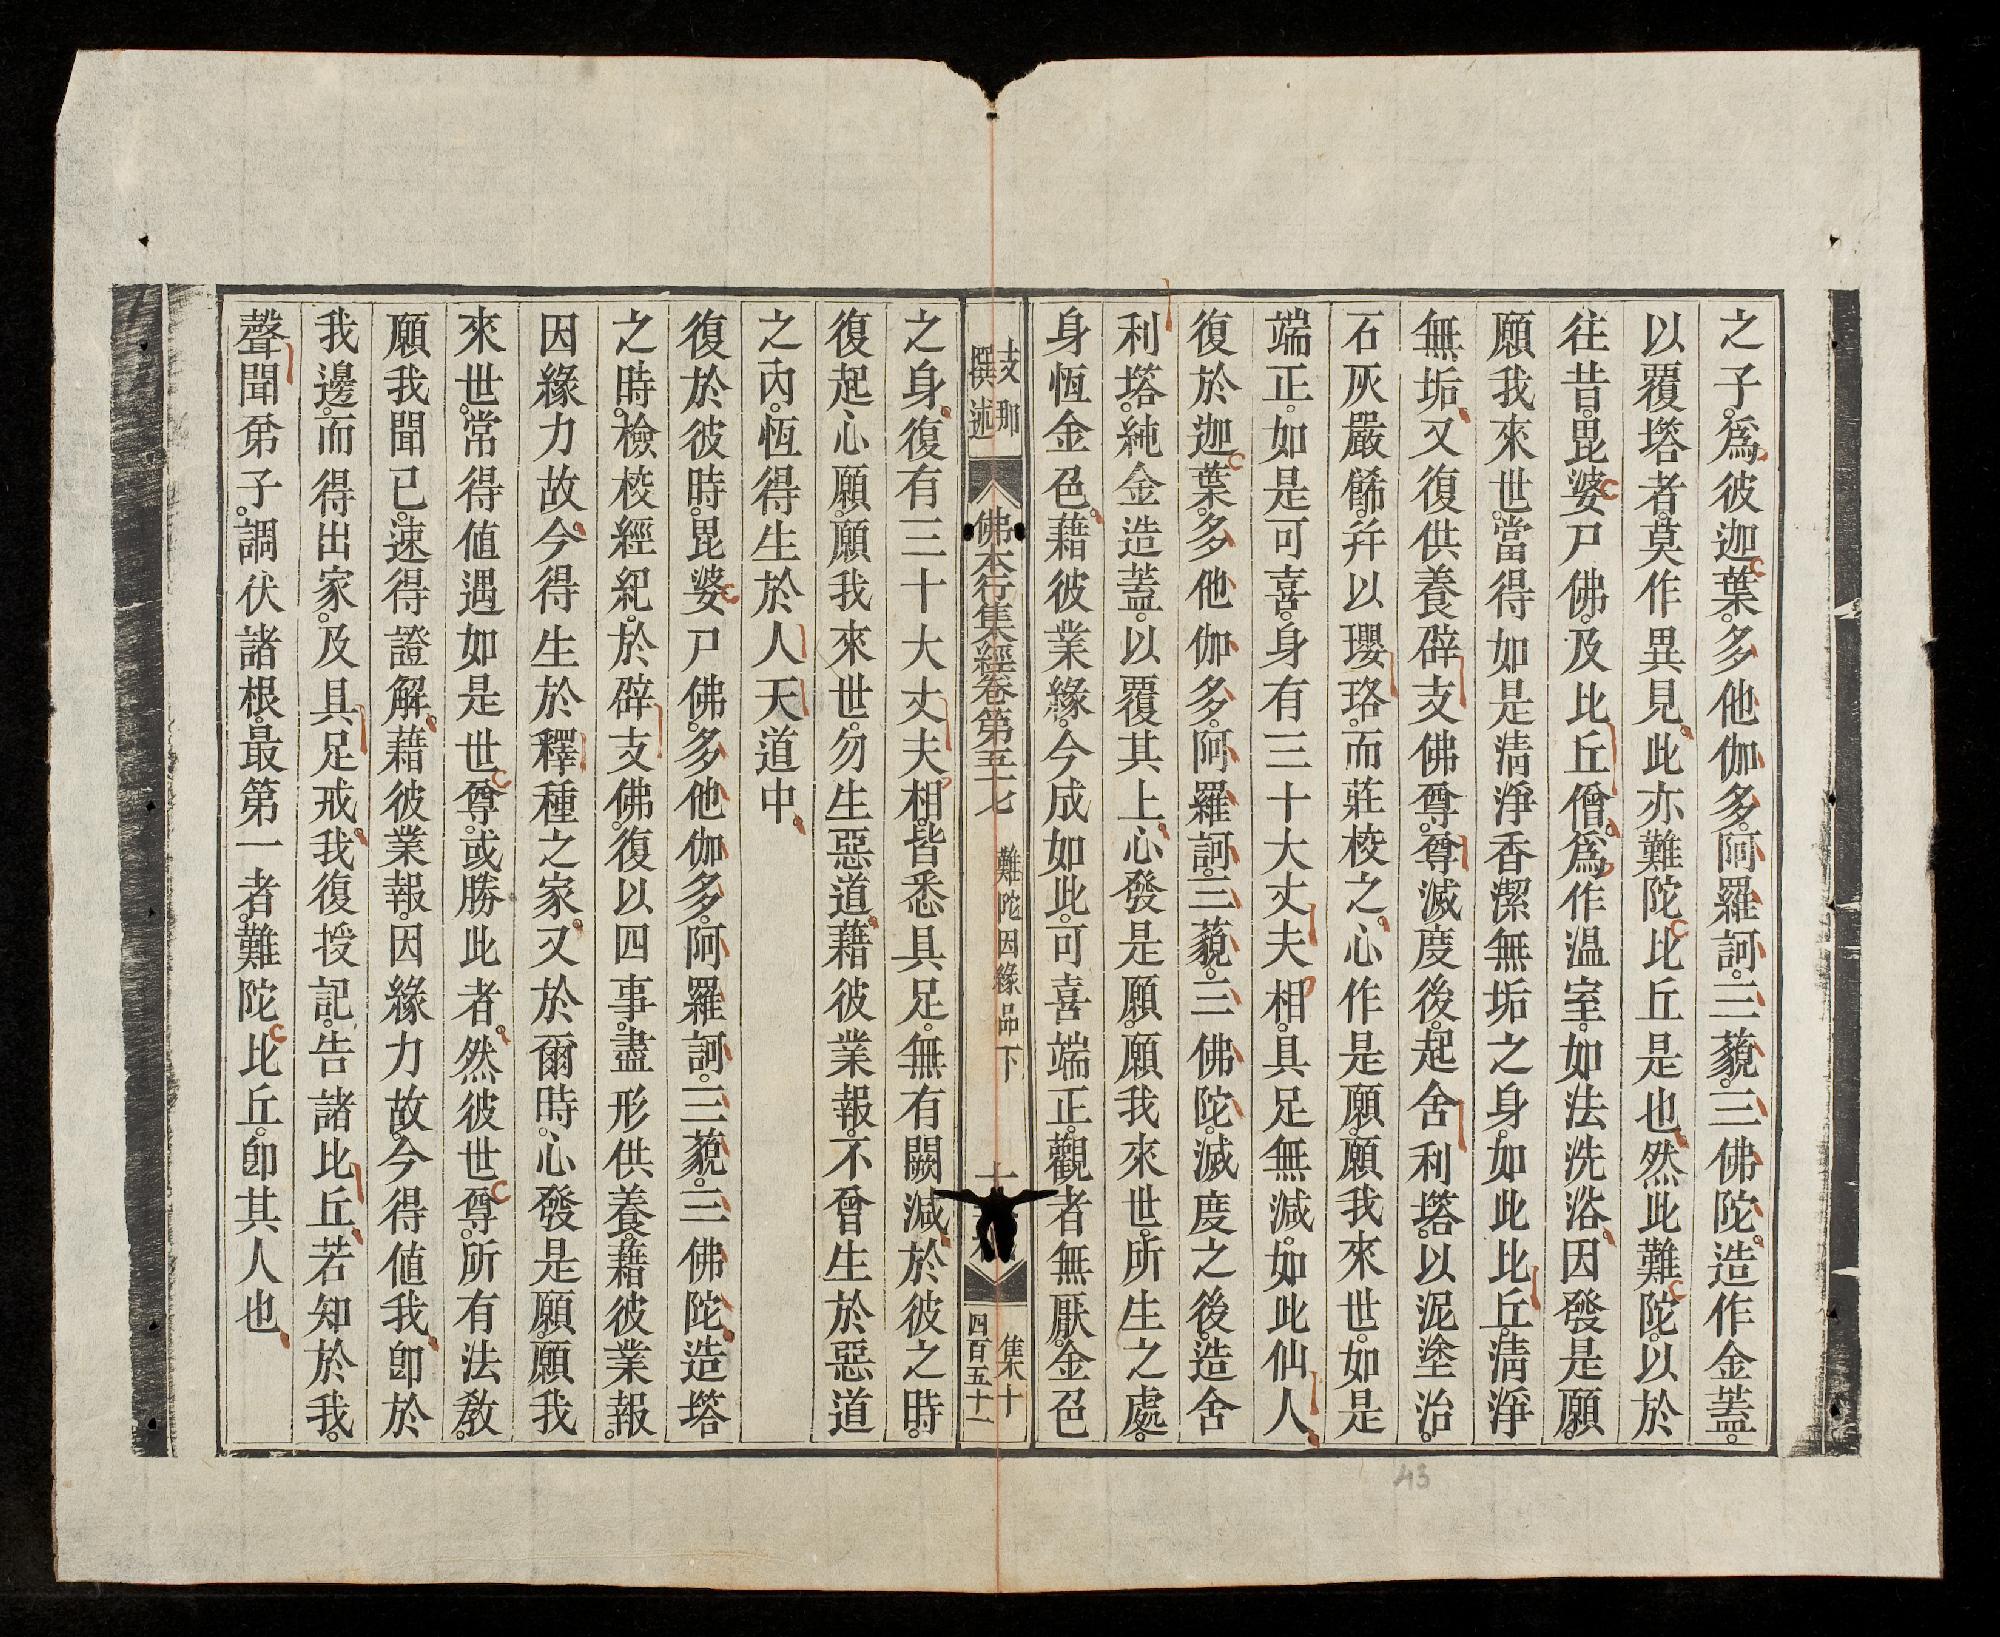 之子。爲彼迦葉。多他伽多。阿羅訶。三藐。三佛陀。造作金蓋。
以覆塔者。莫作異見。此亦難陀比丘是也。然此難陀。以於
往昔。毘婆尸佛。及比丘僧。爲作温室。如法洗浴。因發是願。
願我來世。當得如是清淨香潔無垢之身。如此比丘。清淨
無垢。又復供養辟支佛尊。尊滅度後。起舍利塔。以泥塗治。
石灰嚴餙。幷以瓔珞。而莊校之。心作是願。願我來世。如是
端正。如是可喜。身有三十大丈夫相。具足無減。如此仙人。
復於迦葉。多他伽多。阿羅訶。三藐。三佛陀。滅度之後。造舍
利塔。純金造蓋。以覆其上。心發是願。願我來世。所生之處。
身恆金色。藉彼業緣。今成如此。可喜端正。觀者無厭。金色
支那
撰述
佛本行集經卷第五十七 難陀因緣品下
集十
四百五十一
之身。復有三十大丈夫相。皆悉具足。無有闕減。於彼之時。
復起心願。願我來世。勿生惡道。藉彼業報。不曾生於惡道
之內。恆得生於人天道中。
復於彼時。毘婆尸佛。多他伽多。阿羅訶。三藐。三佛陀。造塔
之時。檢校經紀。於辟支佛。復以四事。盡形供養。藉彼業報。
因緣力故。今得生於釋種之家。又於爾時。心發是願。願我
來世。常得值遇如是世尊。或勝此者。然彼世尊。所有法敎。
願我聞已。速得證解。藉彼業報。因緣力故。今得值我。卽於
我邊。而得出家。及具足戒。我復授記。告諸比丘。若知於我。
聲聞弟子。調伏諸根。最第一者。難陀比丘。卽其人也。
43